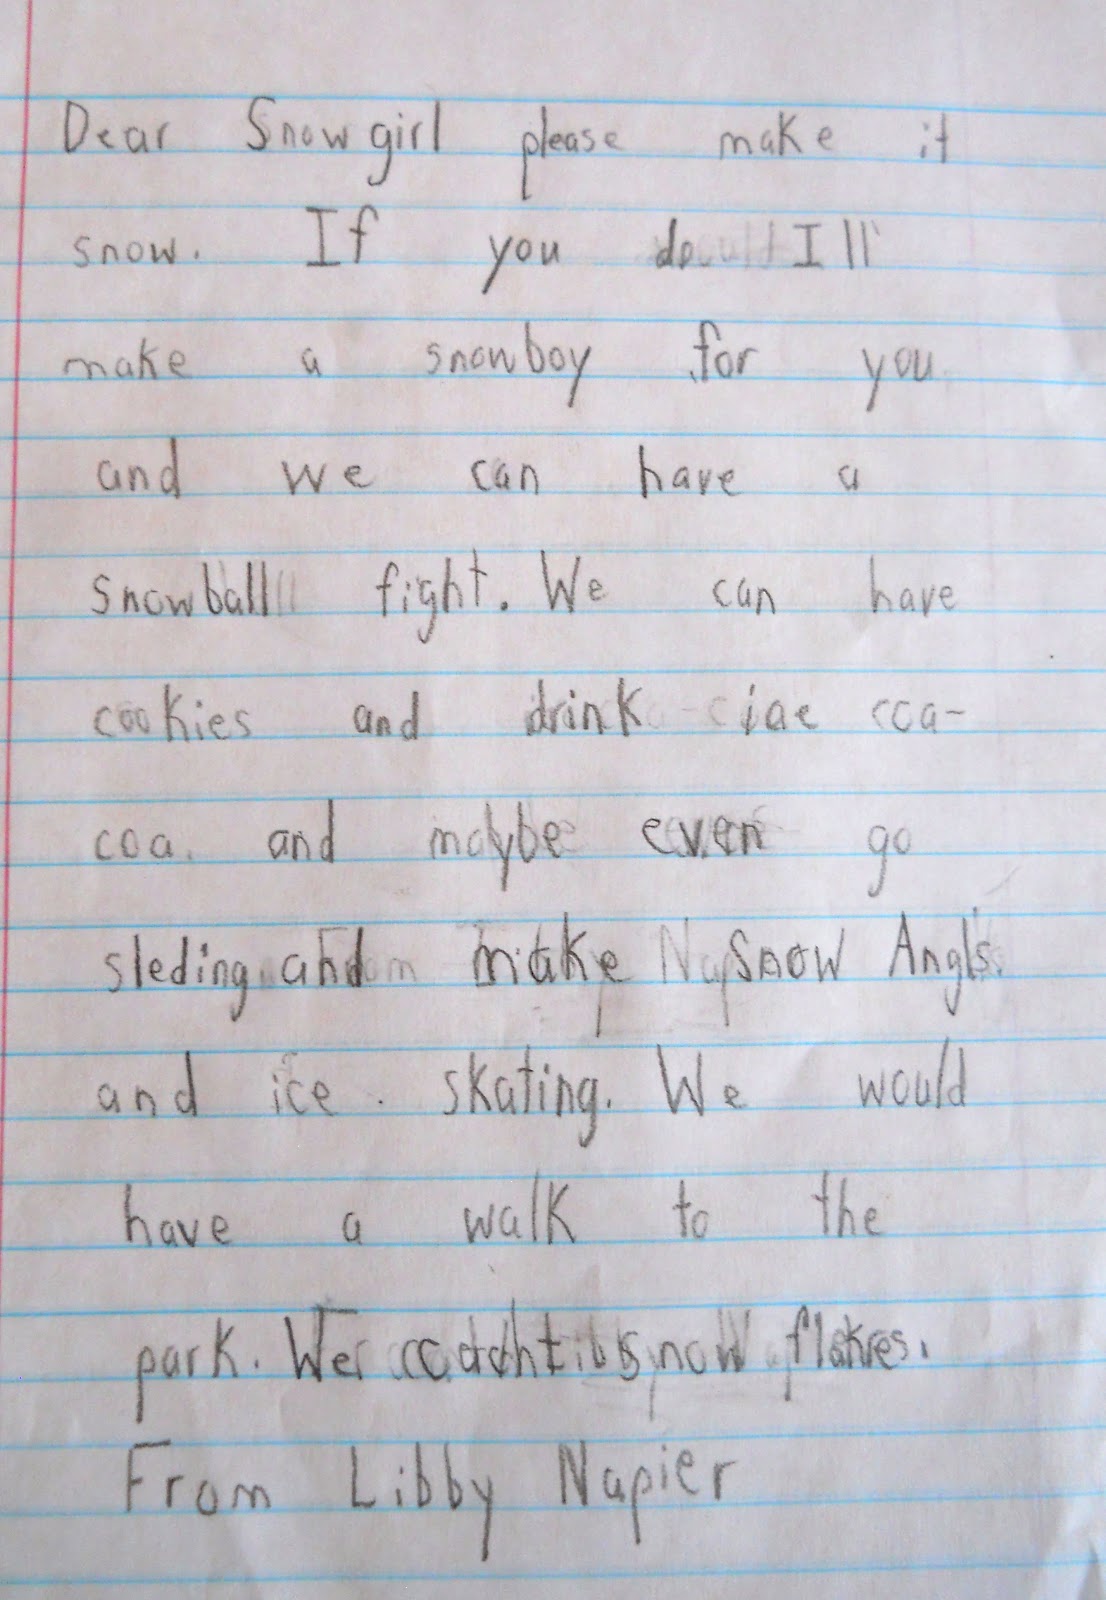 Dear Snowgirl please make it
snow. If you do I'll
make a snowboy for you
and we can have a
snowball fight. We can have
cookies and drink coa-
coa. and maybe even go
sleding. and make snow Angls.
and ice. skating. We would
have a walk to the
park. We snow flakes.
From Libby Napier